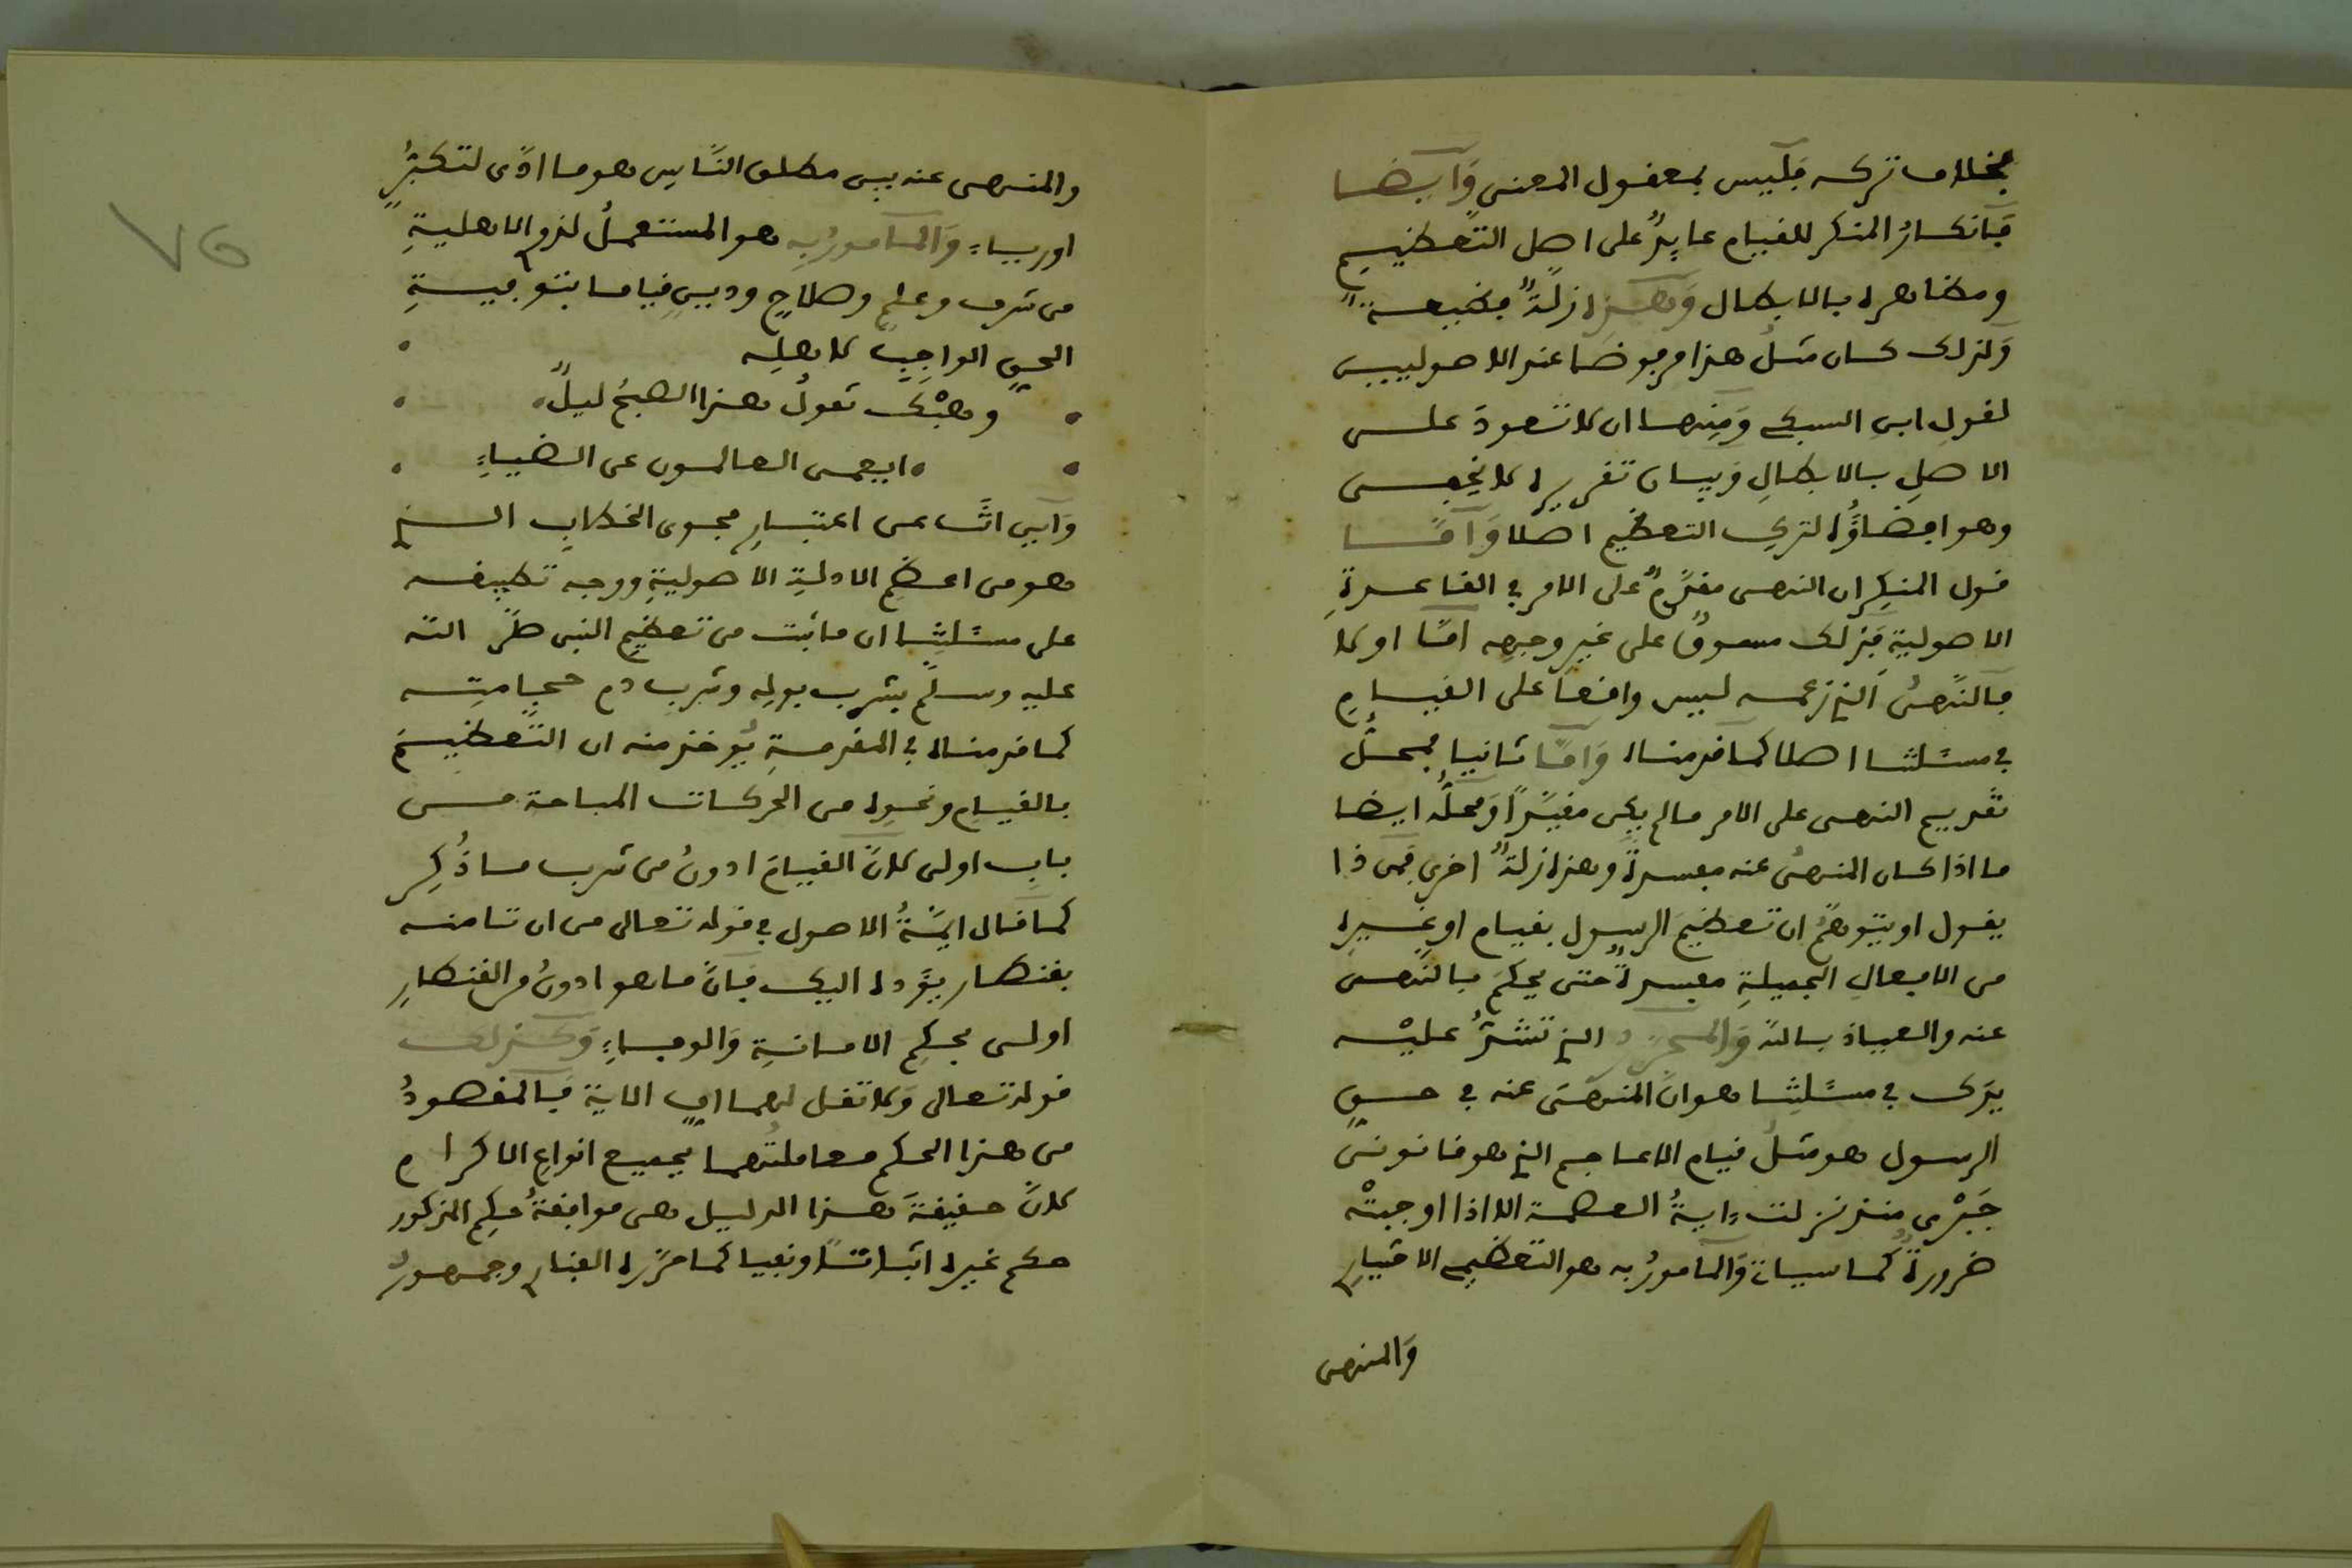 بخلاف تركه فليس بمعقول المعنى وأيضا
فإنكار المنكر للقيام عايد على اصل التعظيم
ومظاهره بالابطال وهذه زلة فظيعة
ولذلك كان مثل هذا مرفوضا عند الاصوليين
لقول ابن السبكي ومنها ان لا تعود على
الاصل بالابطال وبيان تقريره لا يخفى
وهو افضاؤه لترك التعظيم اصلا وأما
قول المنكر ان النهى مقدم على الامر في القاعدة
الاصولية فذلك مسوق على غير وجهه اما اولا
فالنهى الذي زعمه ليس واقعا على القيام
في مسئلتنا اصلا كما قدمناه وأما ثانيا فمحل
تقديم النهى على الامر مالم يكن مقيدا ومحله ايضا
ما اذا كان المنهى عنه مفسدة وهذه زلة اخرى فمن ذا
يقول او يتوهم ان تعظيم الرسول بقيام او غيره
من الافعال الجميلة مفسدة حتى يحكم بالنهى
عنه والعياذ بالله والمحرر الذي تشد عليه
يدك في مسئلتنا هو ان المنهى عنه في حق
الرسول هو مثل قيام الاعاجم الذي هو قانون
جبرى منذ نزلت ءاية العصمة الا اذا اوجبته
ضرورة كما سيأتى والمأمور به هو التعظيم الاختيارى
والمنهى
والمنهى عنه بين مطلق الناس هو ما ادى لتكبر
او رياء والمأمور به هو المستعمل لذوى الاهلية
من شرف وعلم وصلاح ودين قياما بتوفية
الحق الواجب لاهله
وهبك تقول هذا الصبح ليل
ايعمى العالمون عن الضياء
وأين انت من اعتبار فحوى الخطاب الذي
هو من اعظم الادلة الاصولية ووجه تطبيقه
على مسئلتنا ان ما ثبت من تعظيم النبى صلى الله
عليه وسلم بشرب بوله وشرب دم حجامته
كما قدمناه في المقدمة يؤخذ منه ان التعظيم
بالقيام ونحوه من الحركات المباحة من
باب اولى لان القيام ادون من شرب ما ذكر
كما قال ايمة الاصول في قوله تعالى من ان تامنه
بقنطار يؤده اليك فإن ما هو ادون من القنطار
اولى بحكم الامانة والوفاء وكذلك
قوله تعالى ولا تقل لهما اف الاية فالمقصود
من هذا الحكم معاملتهما بجميع انواع الاكرام
لان حقيقة هذا الدليل هى موافقة حكم المذكور
حكم غيره اثباتا ونفيا كما حرره الفنارى وجمهور